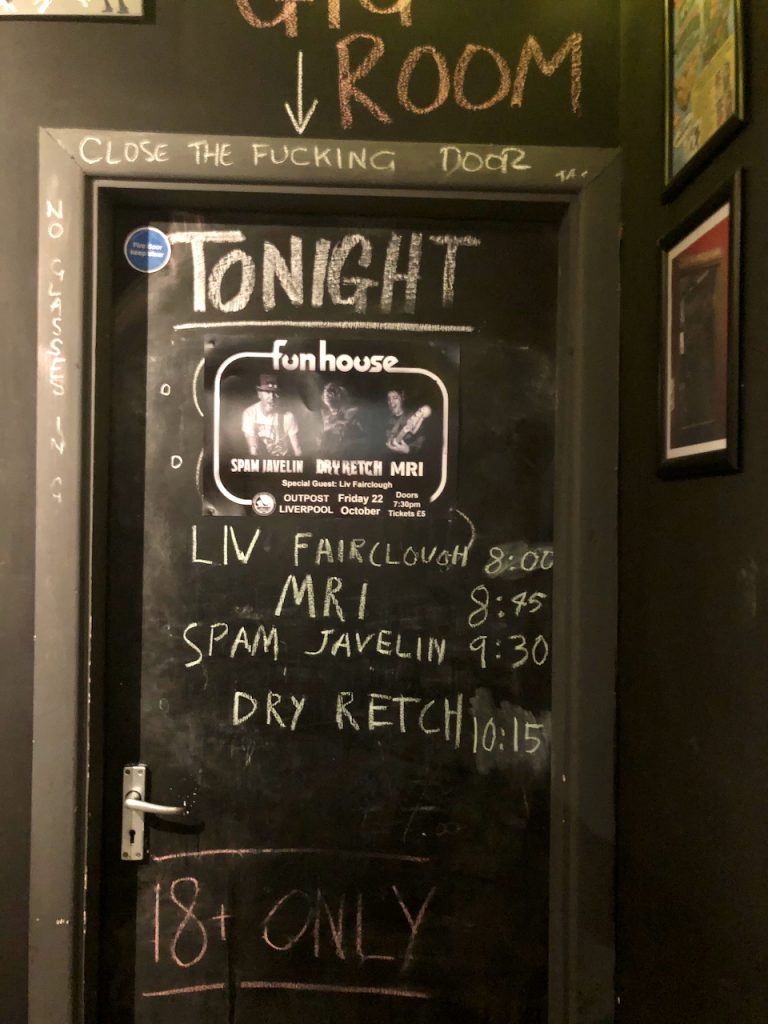 GIG
ROOM
CLOSE THE FUCKING DOOR
NO GLASSES IN
Fire door
keep clear
TONIGHT
fun house
SPAM JAVELIN DRY RETCH MRI
Special Guest: Liv Fairclough
OUTPOST Friday 22 Doors
7:30pm
LIVERPOOL October Tickets £5
LIV FAIRCLOUGH 8:00
MRI 8:45
SPAM JAVELIN 9:30
DRY RETCH 10:15
18+ ONLY